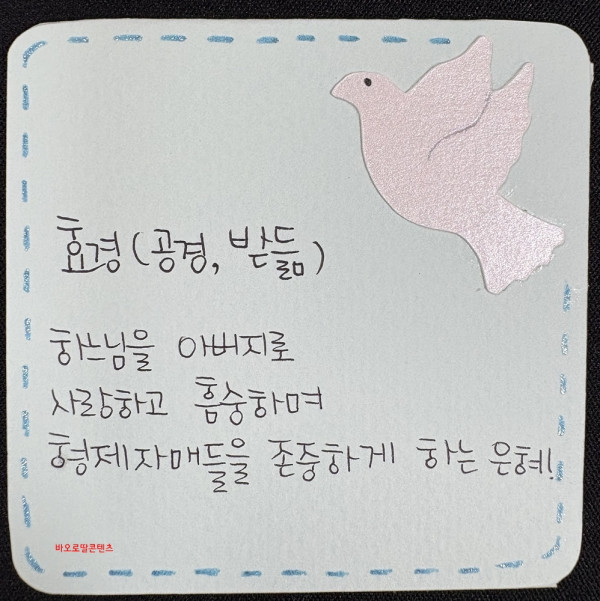 효경(공경, 받듦)
하느님을 아버지로
사랑하고 흠숭하며
형제자매들을 존중하게 하는 은혜!
바오로딸콘텐츠